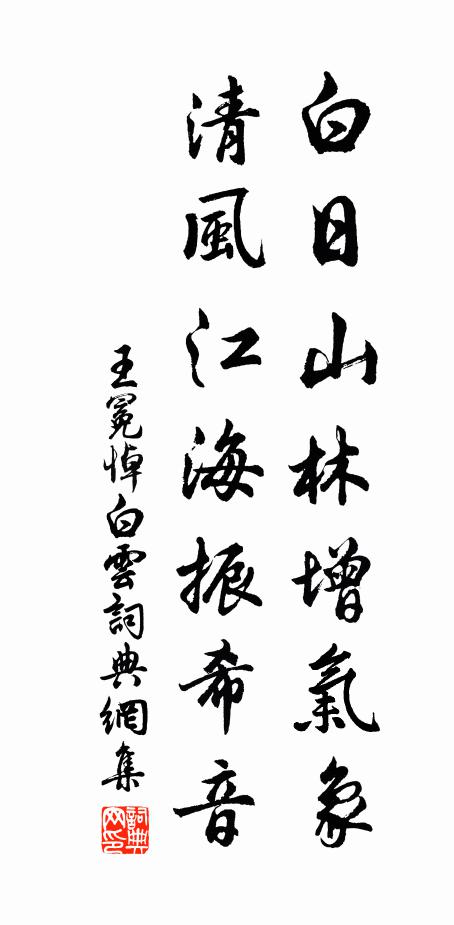 白日山林增氣象
清風江海振希音
王冕悼白雲詞典網集
詞典網印